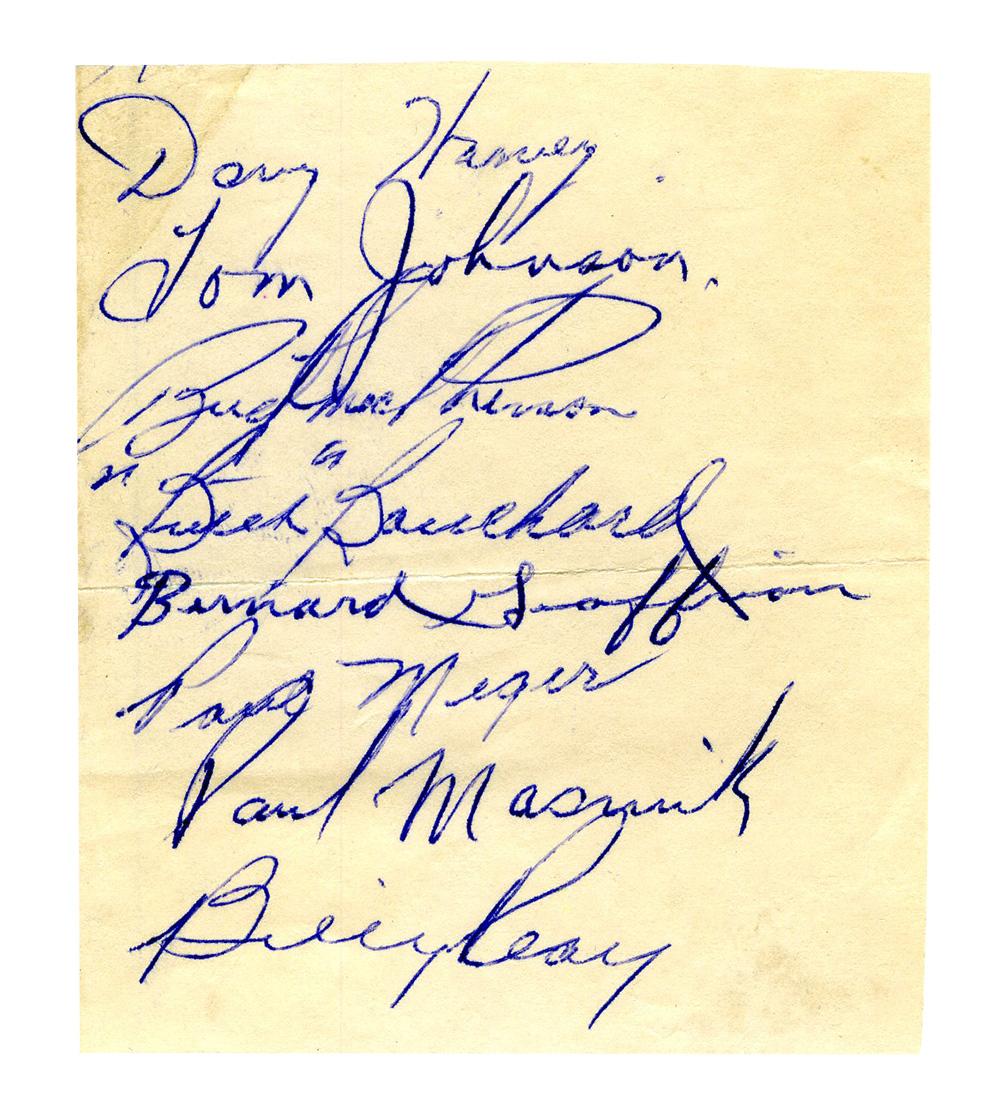 Doug Harvey
Tom Johnson.
Bud MacPherson
"Butch" Bouchard
Bernard Geoffrion
Paul Meger
Paul Masnick
Billy Reay